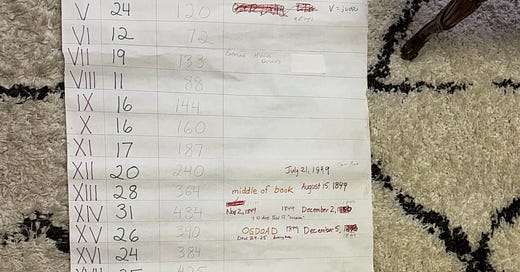 V 24 120 V = just
VI 12 72
VII 19 133
VIII 11 88
IX 16 144
X 16 160
XI 17 187
XII 20 240 July 21, 1849
XIII 28 364 middle of book August 15, 1849
XIV 31 434 Nov 2, 1849 1849 December 2,
XV 26 390 OGDOAD 1849 December 5, 1849
XVI 24 384
XVII 425